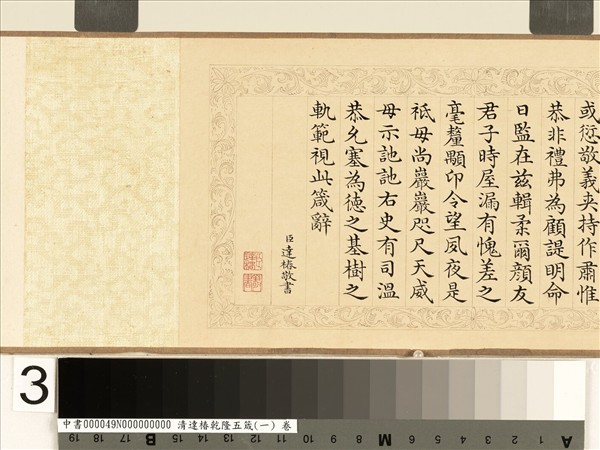 或愆敬義夾持作肅惟
恭非禮弗為顧諟明命
日監在茲輯柔爾顏友
君子時屋漏有愧差之
毫釐顒卬令望夙夜是
祗毋尚巖巖咫尺天威
毋示訑訑右史有司溫
恭允塞為德之基樹之
軌範視此箴辭
臣達椿敬書
3
中書000049N000000000 清達椿乾隆五箴(一) 卷
19 18 17 B 15 14 13 12 11 10 9 8 M 6 5 4 3 2 1 A